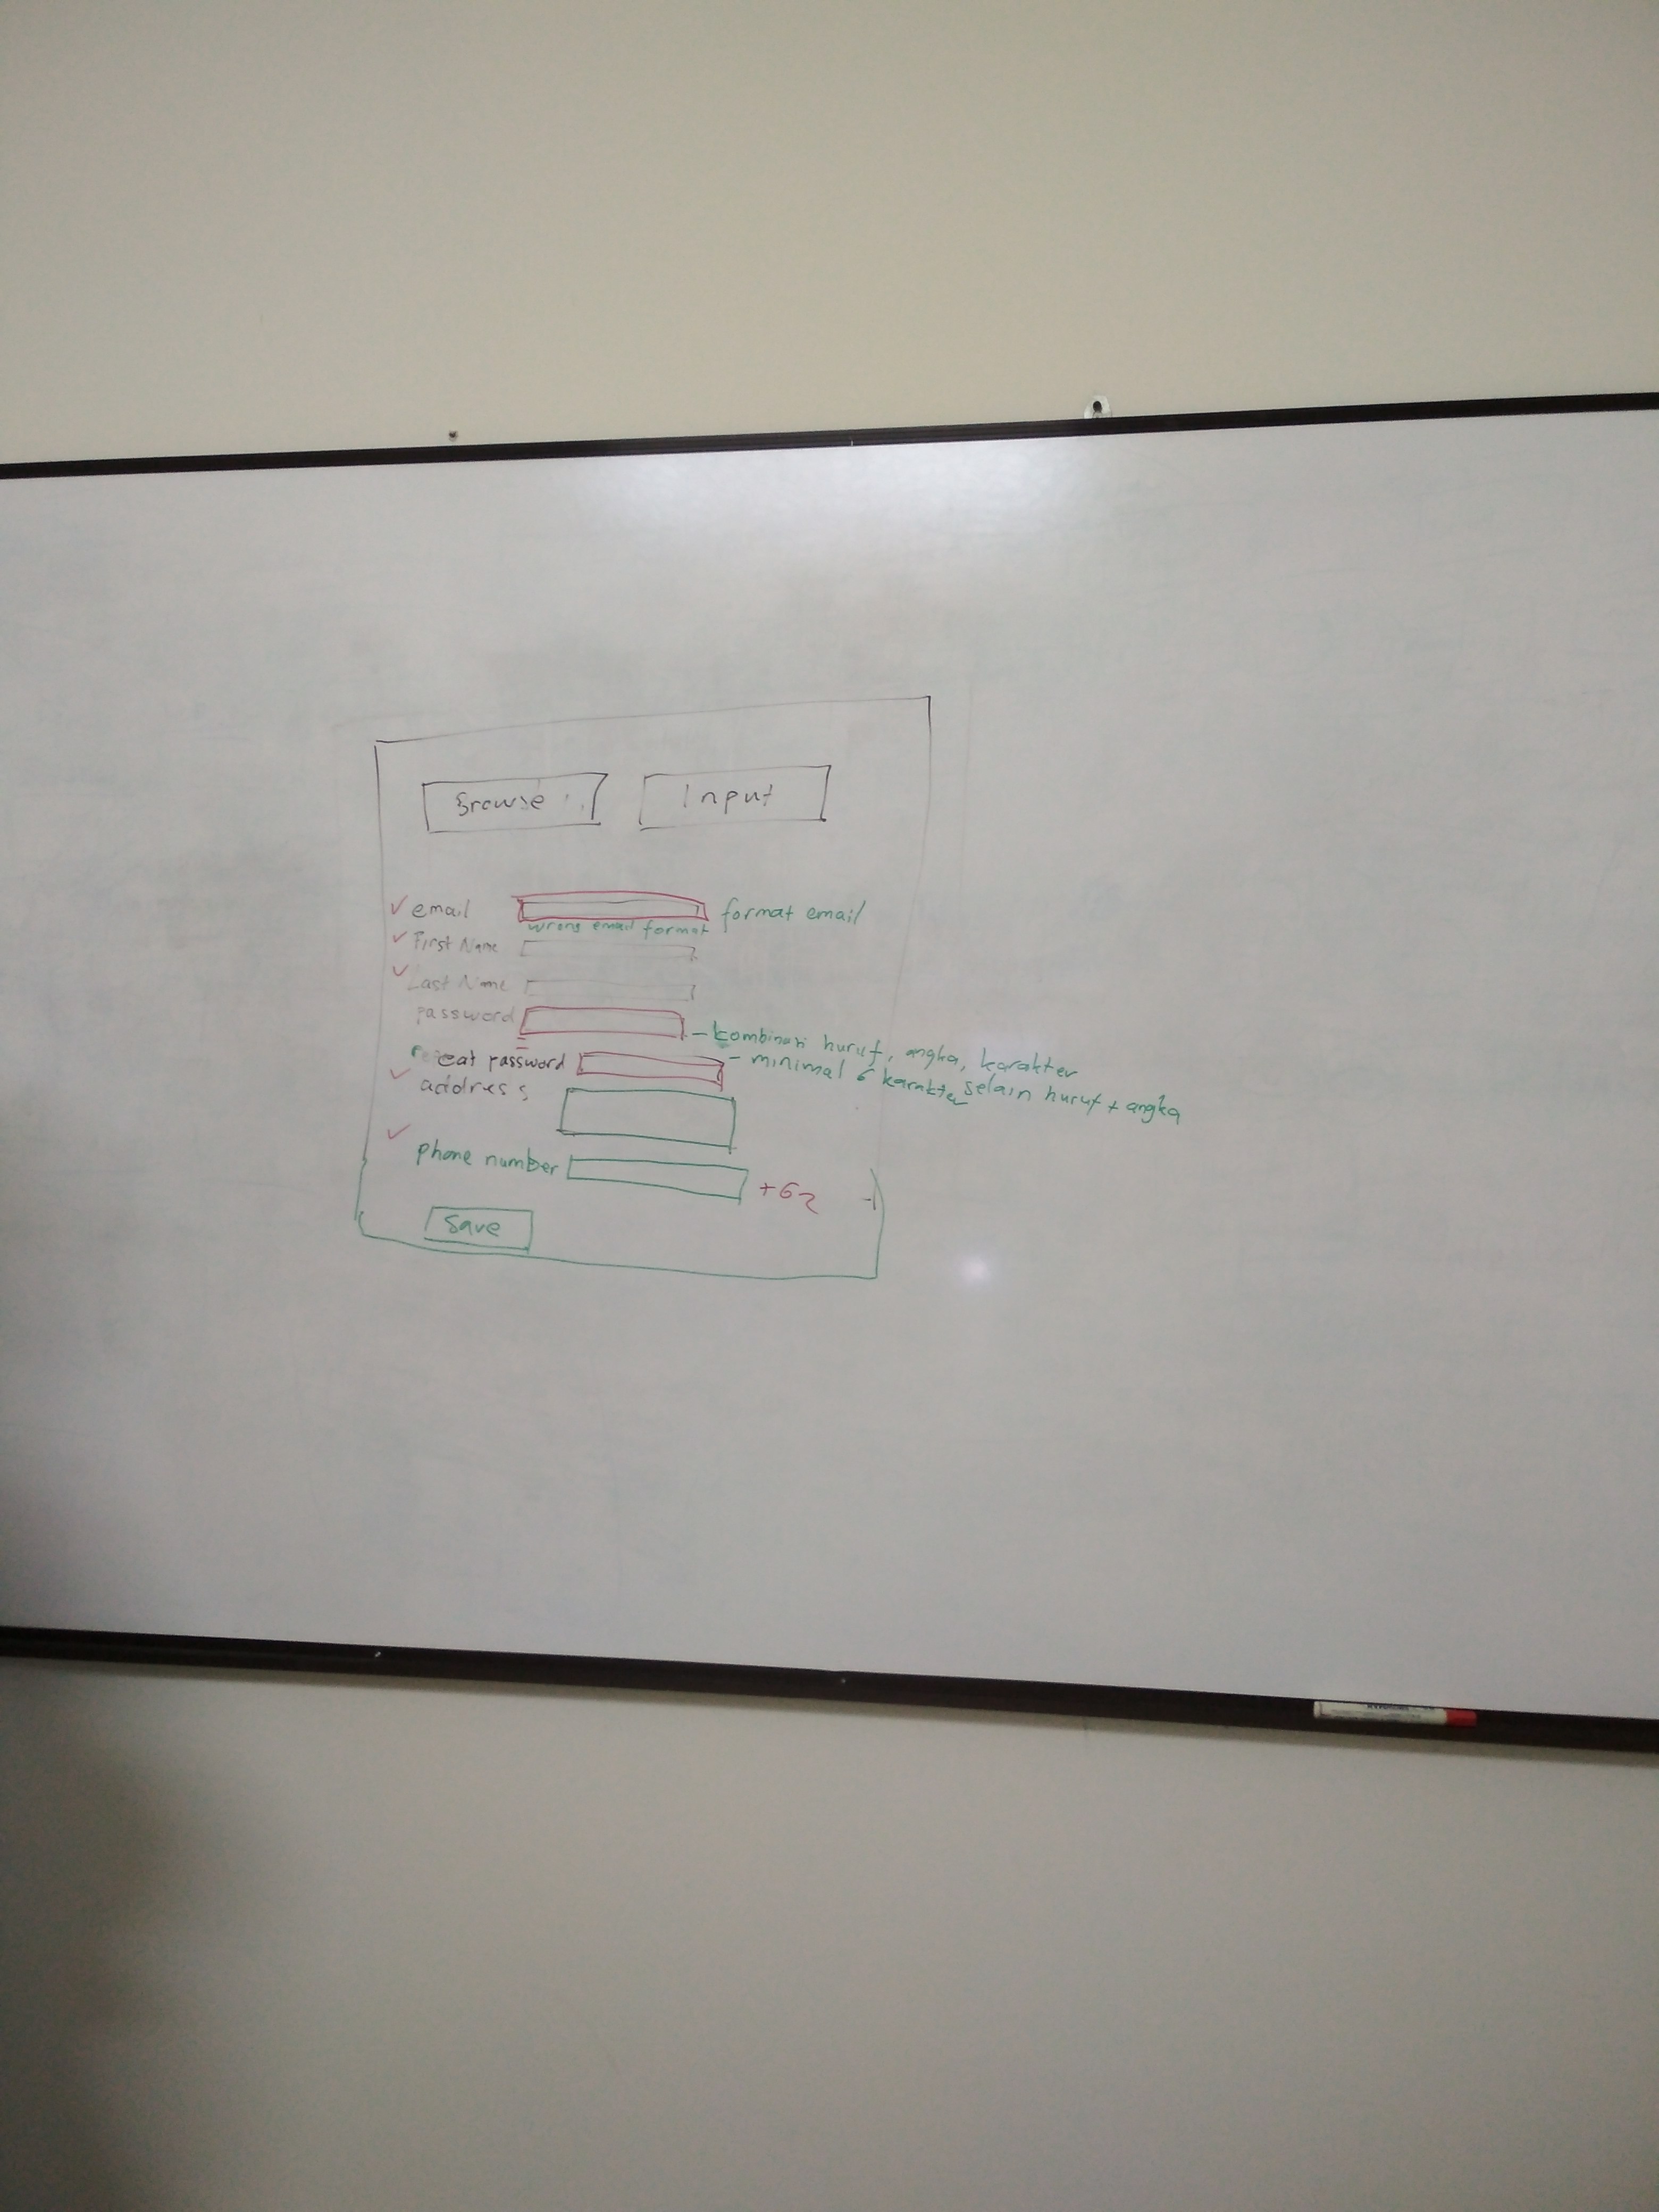 Browse
Input
email
format email
wrong email format
First Name
Last Name
password
- kombinasi huruf, angka, karakter selain huruf + angka
- minimal 6 karakter
repeat password
address
phone number
+62
Save